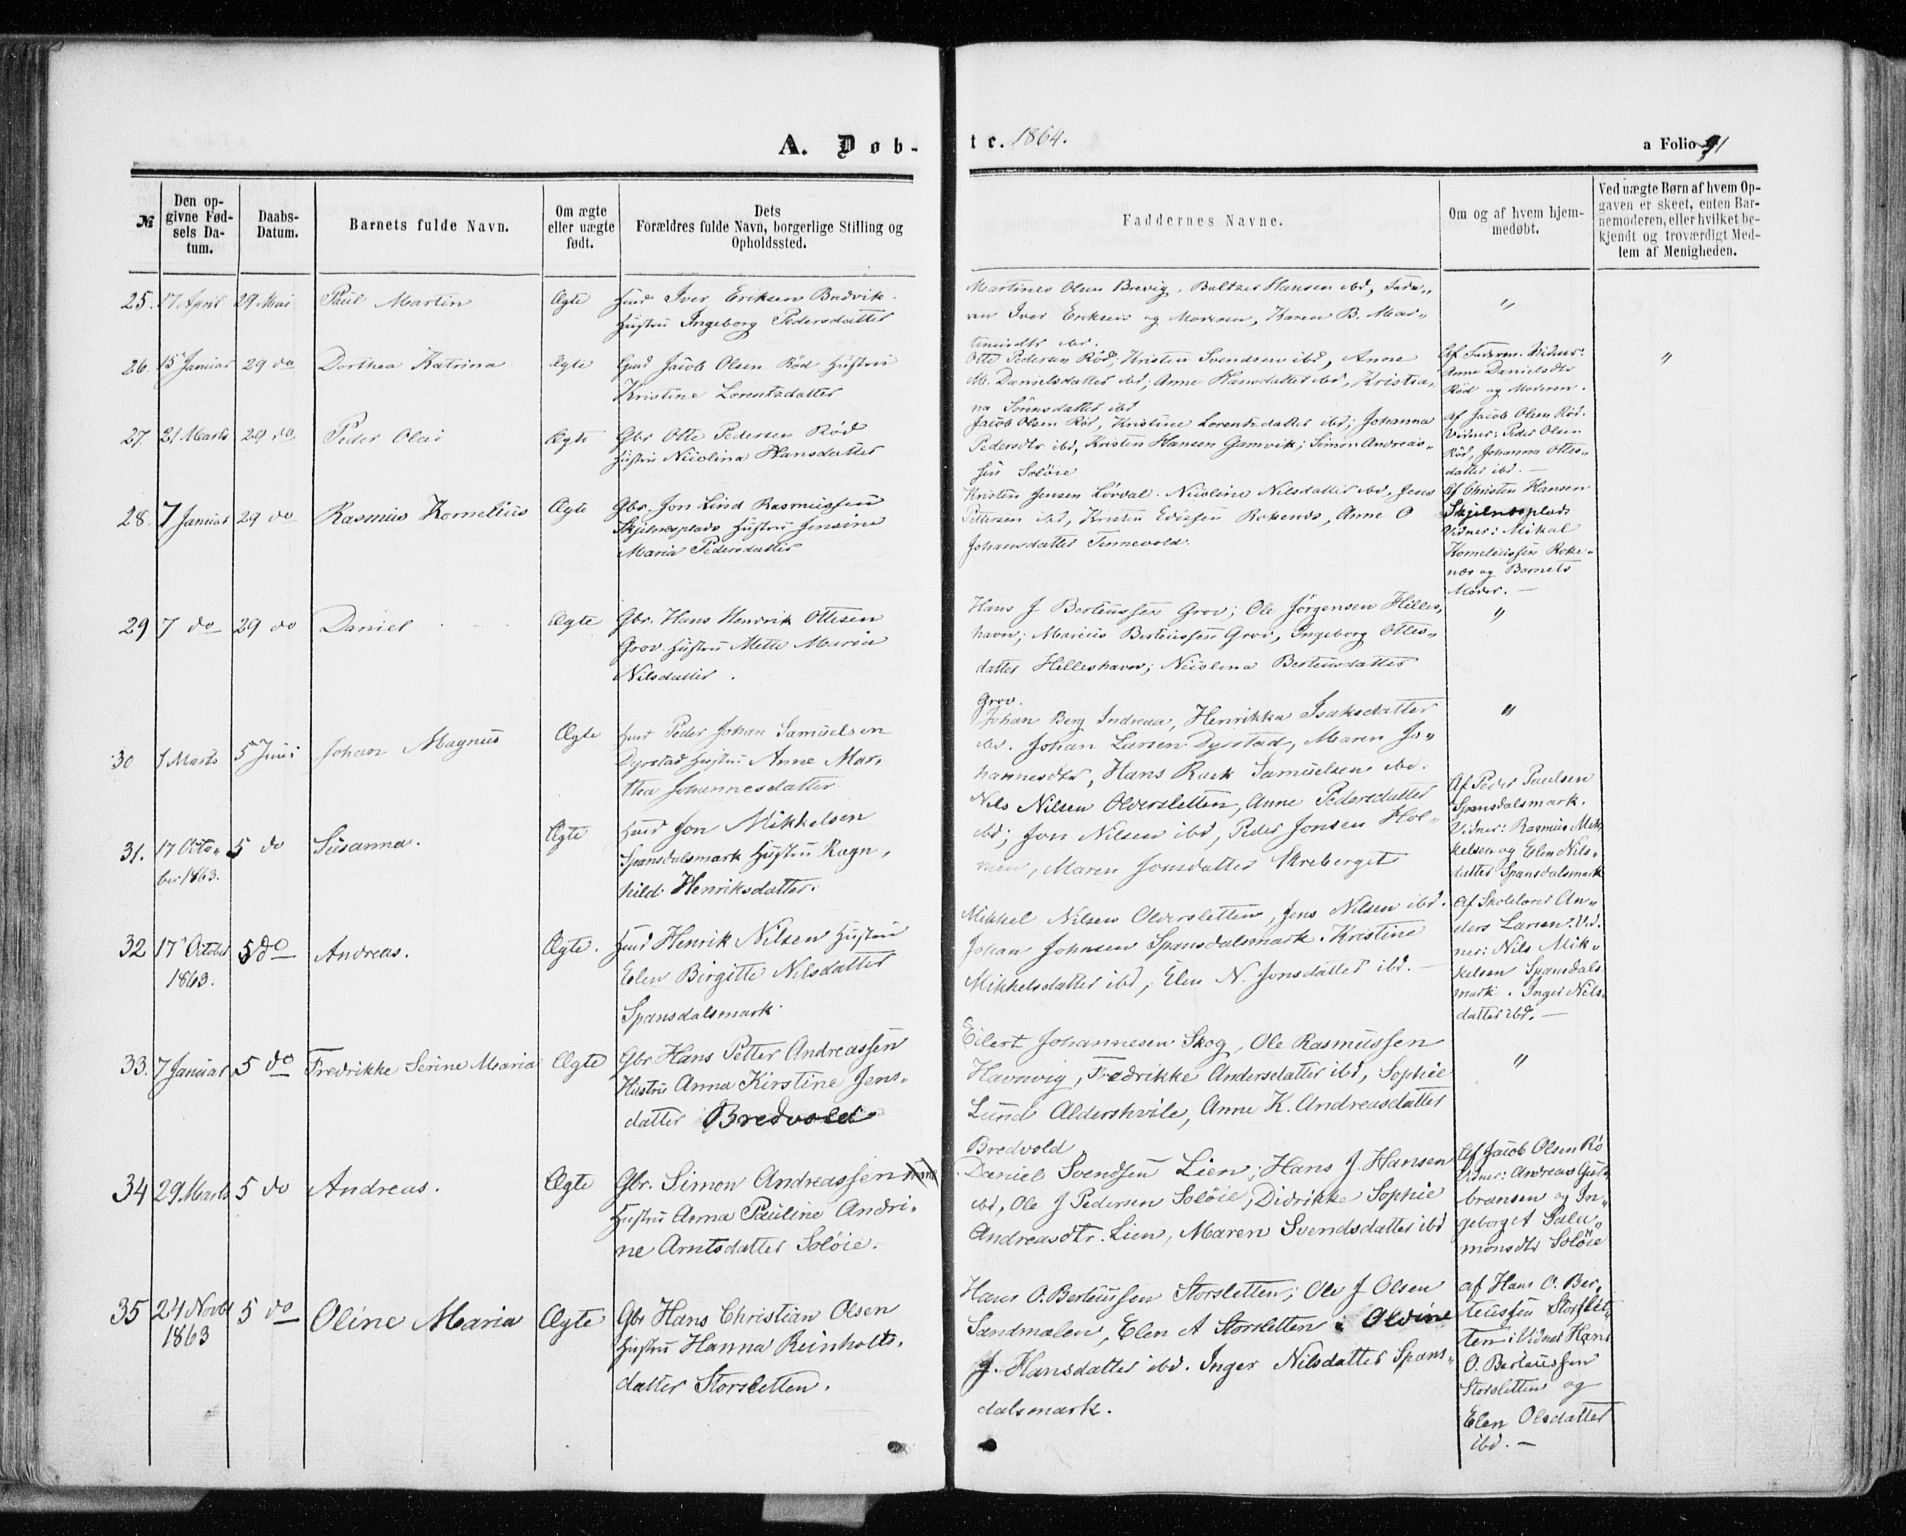 A. Døb-
te. 1864.
a Folio 91
№
Den op-
givne Fød-
sels Da-
tum.
Daabs-
Datum.
Barnets fulde Navn.
Om ægte
eller uægte
født.
Dets
Forældres fulde Navn, borgerlige Stilling og
Opholdssted.
Faddernes Navne.
Om og af hvem hjem-
medøbt.
Ved uægte Børn af hvem Op-
gaven er skeet, enten Bar-
nemoderen, eller hvilket be-
kjendt og troværdigt Med-
lem af Menigheden.
25. 17 April 29 Mai Paul Martin Ægte
Iver Eriksen Bredvik
Hustru Ingeborg Pedersdatter
Martines Olsen Brevig, Baltzer Hansen ibd, Fade-
ren Iver Eriksen og Moderen, Karen B. Mar-
tinusdtr ibd.
"
26. 15 Januar 29 do Dorthea Katrina Ægte
Gmd Jacob Olsen Rød Hustru
Kristine Lorentsdatter
Otte Pedersen Rød; Kristen Svendsen ibd, Anne
M. Danielsdatter ibd; Anne Hansdatter ibd, Kristia-
na Sørensdatter ibd
Af Faderen. Vidner:
Anne Danielsdtr
Rød og Moderen.
"
27. 21 Marts 29 do Peder Olai Ægte
Gbr Otte Pedersen Rød
Hustru Nicolina Hansdatter
Jacob Olsen Rød, Kristine Lorentsdatter ibd; Johanna
Pedersdtr ibd, Kristen Hansen Gamvik; Simon Andreas-
sen Soløie
af Jacob Olsen Rød.
Vidner: Peder Olsen
Rød, Johanna Ottes-
datter ibd. —
28. 7 Januar 29 do Rasmus Kornelius Ægte
Gbr. Jon Lind Rasmussen
Skjelnesplads Hustru Jensine
Maria Pedersdatter
Kristen Jensen Løvdal. Nicoline Nilsdatter ibd, Jens
Pettersen ibd, Kristen Rokenes, Anne O
Johansdatter Tennevold.
Af Christen Hansen
Skjelnesplads
Vidner: Mikal
Korneliussen Roke-
nes og Barnets
Moder. —
29 7 do 29 do Daniel Ægte
Gbr. Hans Henrik Ottesen
Grov Hustru Mette Maria
Nilsdatter.
Hans J Berteussen Grov; Ole Jørgensen Hilles-
havn; Marius Berteussen Grov, Ingeborg Ottes-
datter Hilleshavn; Nicolina Berteusdatter
Grov.
"
30 1 Marts 5 Juni Johan Magnus Ægte
Peder Johan Samuelsen
Dyrstad Hustru Anne Mar-
tha Johannesdatter
Johan Berg Indreaa, Henrikka Isaksdatter
ibd. Johan Larsen Dyrstad, Maren Jo-
hannesdtr, Hans Rask Samuelsen ibd.
"
31. 17 Octo-
ber 1863. 5 do Susanna. Ægte
Jon Mikkelsen
Spansdalsmark Hustru Ragn-
hild Henriksdatter.
Nils Nilsen Olversletten, Anne Pedersdatter
ibd; Jon Nilsen ibd, Peder Jonsen Hol-
men, Maren Jonsdatter Skreberget
Af Peder Paulsen
Spansdalsmark.
Vidner: Rasmus Mik-
kelsen og Elen Nils-
datter Spansdalsmark
32 17 October
1863. 5 do Andreas. Ægte.
Henrik Nilsen Hustru
Elen Birgitte Nilsdatter
Spansdalsmark.
Mikkel Nilsen Olversletten, Jens Nilsen ibd.
Johan Johnsen Spansdalsmark. Kristine
Mikkelsdatter ibd, Elen N. Jonsdatter ibd. —
af Skolelærer An-
ders Larsen. Vid-
ner: Nils Mik-
kelsen Spansdals
mark. Inger Nils-
datter ibd. —
33. 7 Januar 5 do Fredrikke Serine Maria Ægte
Gbr Hans Petter Andreassen
Hustru Anna Kirstine Jens-
datter Bredvold
Eilert Johannesen Skog, Ole Rasmussen
Havnvig, Fredrikke Andersdatter ibd, Sophie
Lund Aldershvile, Anne K. Andreasdatter
Bredvold
"
34 29 Marts 5 do Andreas. Ægte
Gbr. Simon Andreassen
Hustru Anna Pauline Andri-
ne Arntsdatter Soløie.
Daniel Svendsen Lien; Hans J. Hansen
ibd, Ole J Pedersen Soløie, Didrikke Sophie
Andreasdtr. Lien, Maren Svendsdatter ibd
Af Jacob Olsen Rø
Vidner: Andreas Gul-
bransen og In-
geborget Salo-
monsdtr Soløie
35 24 Novbr
1863 5 do Oline Maria Ægte
Gbr Hans Christian Olsen
Hustru Hanna Reinholts-
datter Storsletten.
Hans O. Berteussen Storsletten; Ole J Olsen
Sandmælen, Elen A Storsletten; Oldine
J. Hansdatter ibd. Inger Nilsdatter Spans-
dalsmark.
af Hans O. Ber-
teussen Storslet-
ten: Vidner Hans
O. Berteussen
Storsletten og
Elen Olsdatter
ibd. —